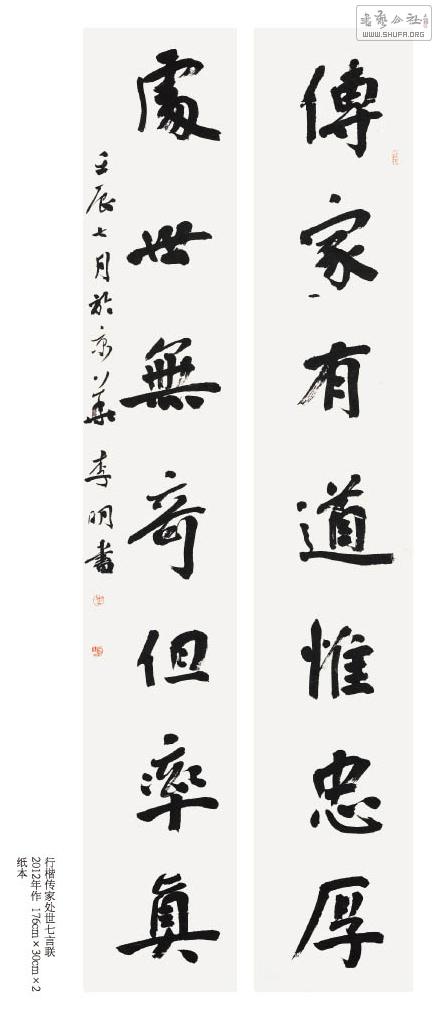 傳家有道惟忠厚
處世無奇但率真
壬辰七月於京華李明書
行楷传家处世七言联
2012年作 176cm×30cm×2
纸本
书艺公社
WWW.SHUFA.ORG